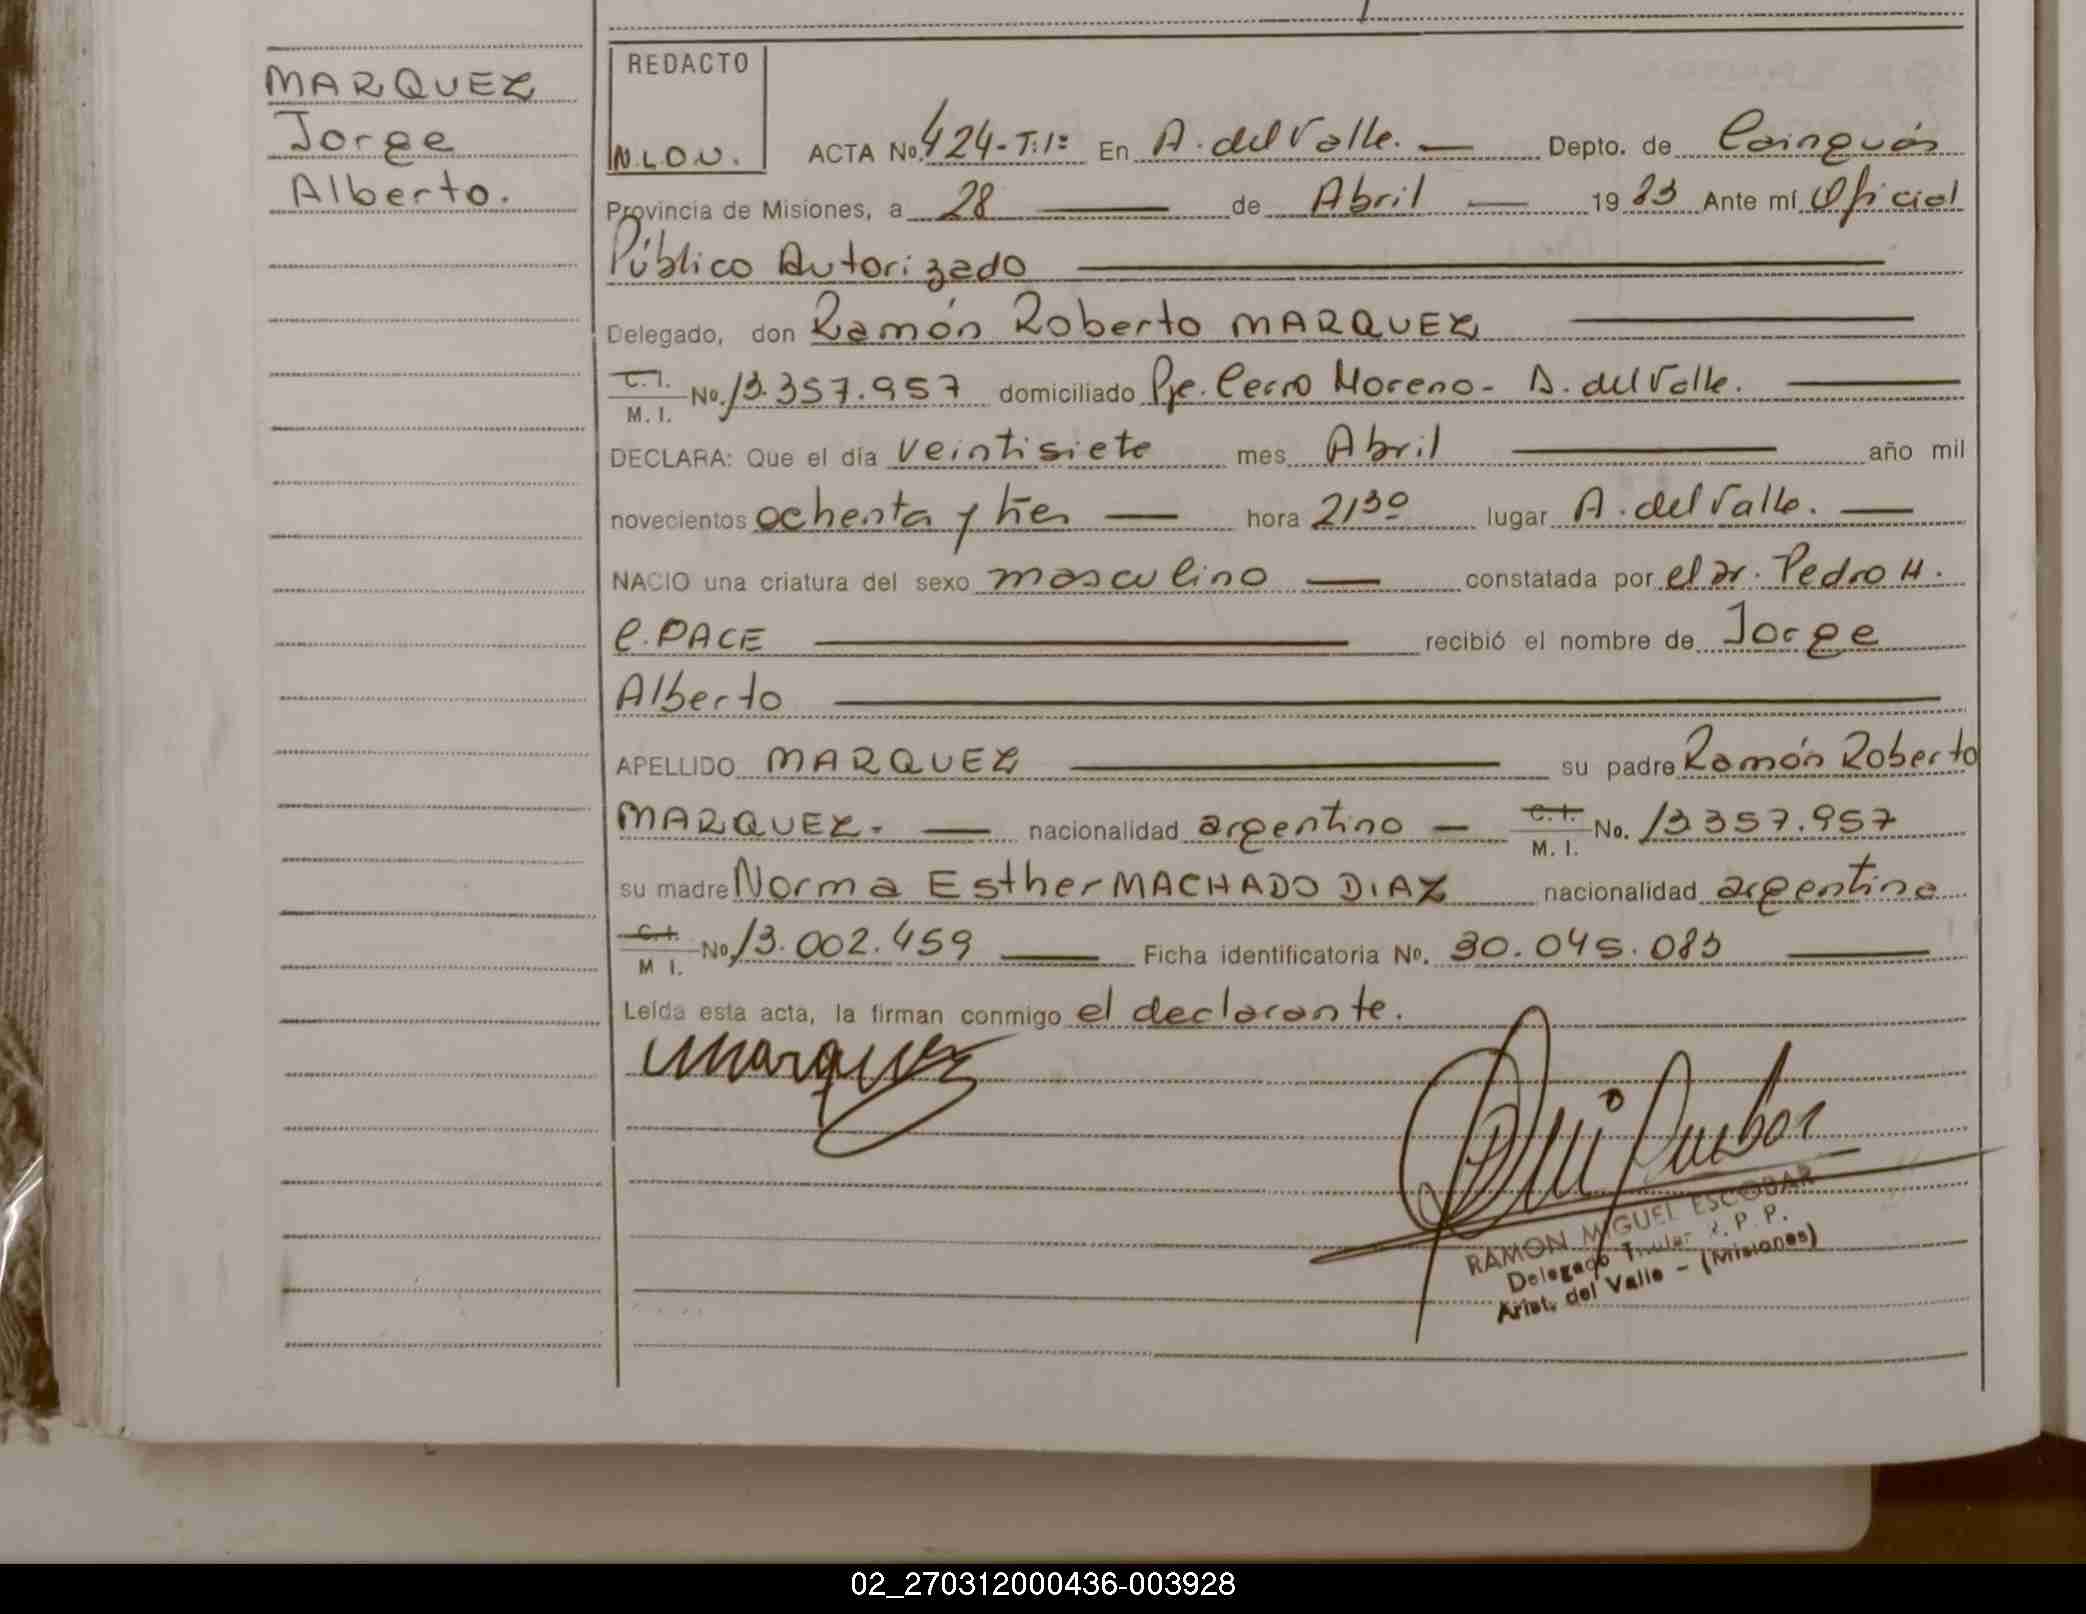 MARQUEZ
Jorge
Alberto.
REDACTO
N.L.O.U.
ACTA No. 424-T:1º En A. del Valle. Depto. de Cainguás
Provincia de Misiones, a 28 de Abril 1983 Ante mí Oficial
Público Autorizado
Delegado, don Ramón Roberto MARQUEZ
C.I. M.I. No. 13.357.957 domiciliado Pje. Cerro Moreno - A. del Valle.
DECLARA: Que el día veintisiete mes Abril año mil
novecientos ochenta y tres hora 21³⁰ lugar A. del Valle.
NACIO una criatura del sexo masculino constatada por el Dr. Pedro H.
C. PACE recibió el nombre de Jorge
Alberto
APELLIDO MARQUEZ su padre Ramón Roberto
MARQUEZ. nacionalidad argentino C.I. M.I. No. 13.357.957
su madre Norma Esther MACHADO DIAZ nacionalidad argentina
C.I. M I. No. 13.002.459 Ficha identificatoria No. 30.045.083
Leída esta acta, la firman conmigo el declarante.
Marquez
RAMON MIGUEL ESCOBAR
Delegado Titular R. P. P.
Arist. del Valle - (Misiones)
02_270312000436-003928